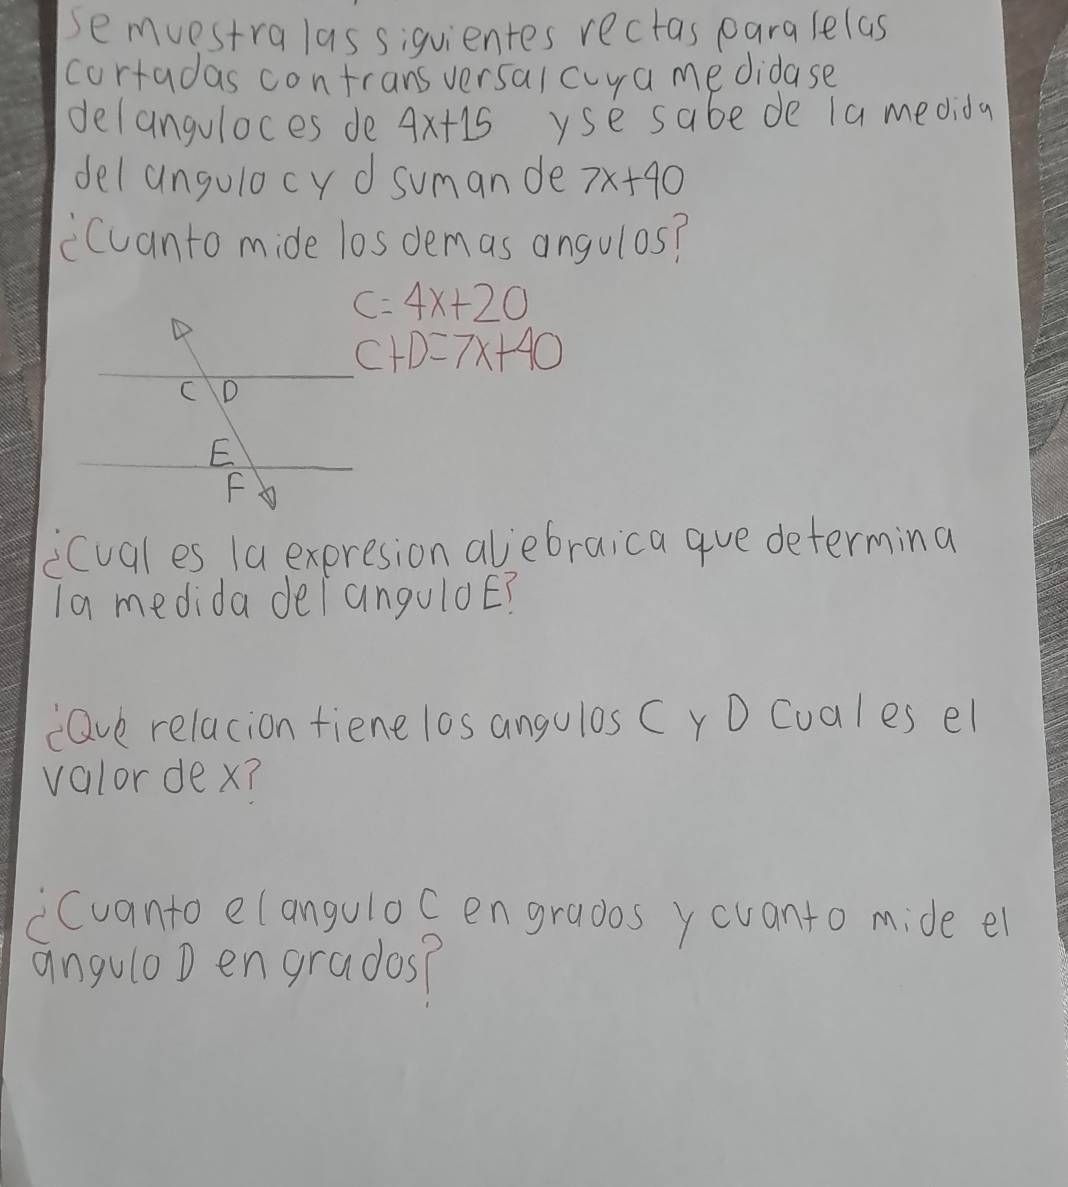 se muestra las siguientes rectas paralelas
cortadas con transversal cuya medida se
del angulo c es de 4x+15 y se sabe de la medida
del angulo c y d suman de 7x+40
¿Cuanto mide los demas angulos?
C=4x+20
C+D=7x+40
C D
E
F
¿Cual es la expresion aljebraica que determina
la medida del angulo E?
¿Que relacion tiene los angulos C y D Cual es el
valor de x?
¿Cuanto el angulo C en grados y cuanto mide el
angulo D en grados?